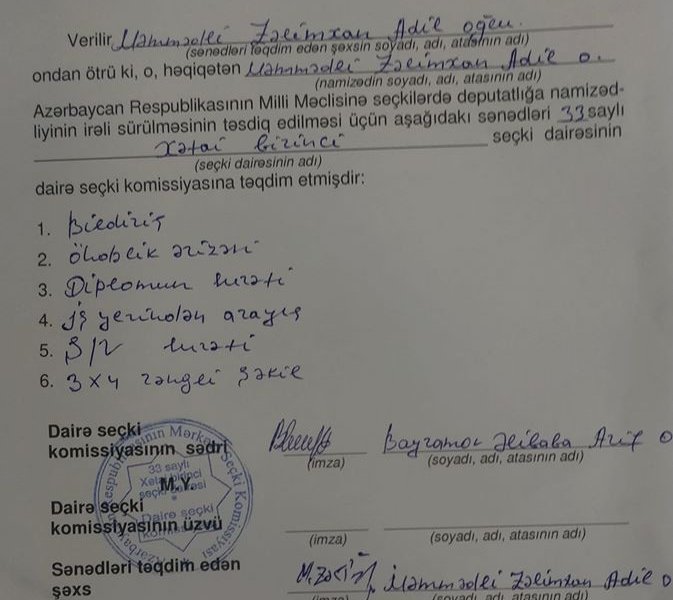 Verilir Məmmədli Zəlimxan Adil oğlu.
(sənədləri təqdim edən şəxsin soyadı, adı, atasının adı)
ondan ötrü ki, o, həqiqətən Məmmədli Zəlimxan Adil o.
(namizədin soyadı, adı, atasının adı)
Azərbaycan Respublikasının Milli Məclisinə seçkilərdə deputatlığa namizəd-
liyinin irəli sürülməsinin təsdiq edilməsi üçün aşağıdakı sənədləri 33 saylı
Xətai birinci seçki dairəsinin
(seçki dairəsinin adı)
dairə seçki komissiyasına təqdim etmişdir:
1. Bildiriş
2. Öhdəlik ərizəsi
3. Diplomun surəti
4. İş yerindən arayış
5. Ş/V surəti
6. 3x4 rəngli şəkil
Dairə seçki
komissiyasının sədri Bayramov Əlibaba Arif o
(imza) (soyadı, adı, atasının adı)
33 saylı
Xətai birinci
seçki dairəsi
M.Y.
Dairə seçki
Dairə seçki
komissiyasının üzvü
(imza) (soyadı, adı, atasının adı)
Sənədləri təqdim edən
şəxs M.Zəlim Məmmədli Zəlimxan Adil o
(imza) (soyadı, adı, atasının adı)